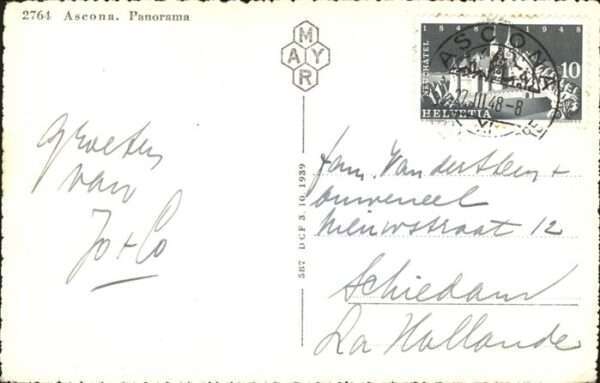 2764 Ascona. Panorama
MAYR
1848 1948
NEUCHÂTEL
10
HELVETIA
ASCONA
III.48-8
Groeten
van
Jo + Co
587 DCF 3. 10. 1939
Fam. Van der Steen +
Ouweneel
Nieuwstraat 12
Schiedam
La Hollande